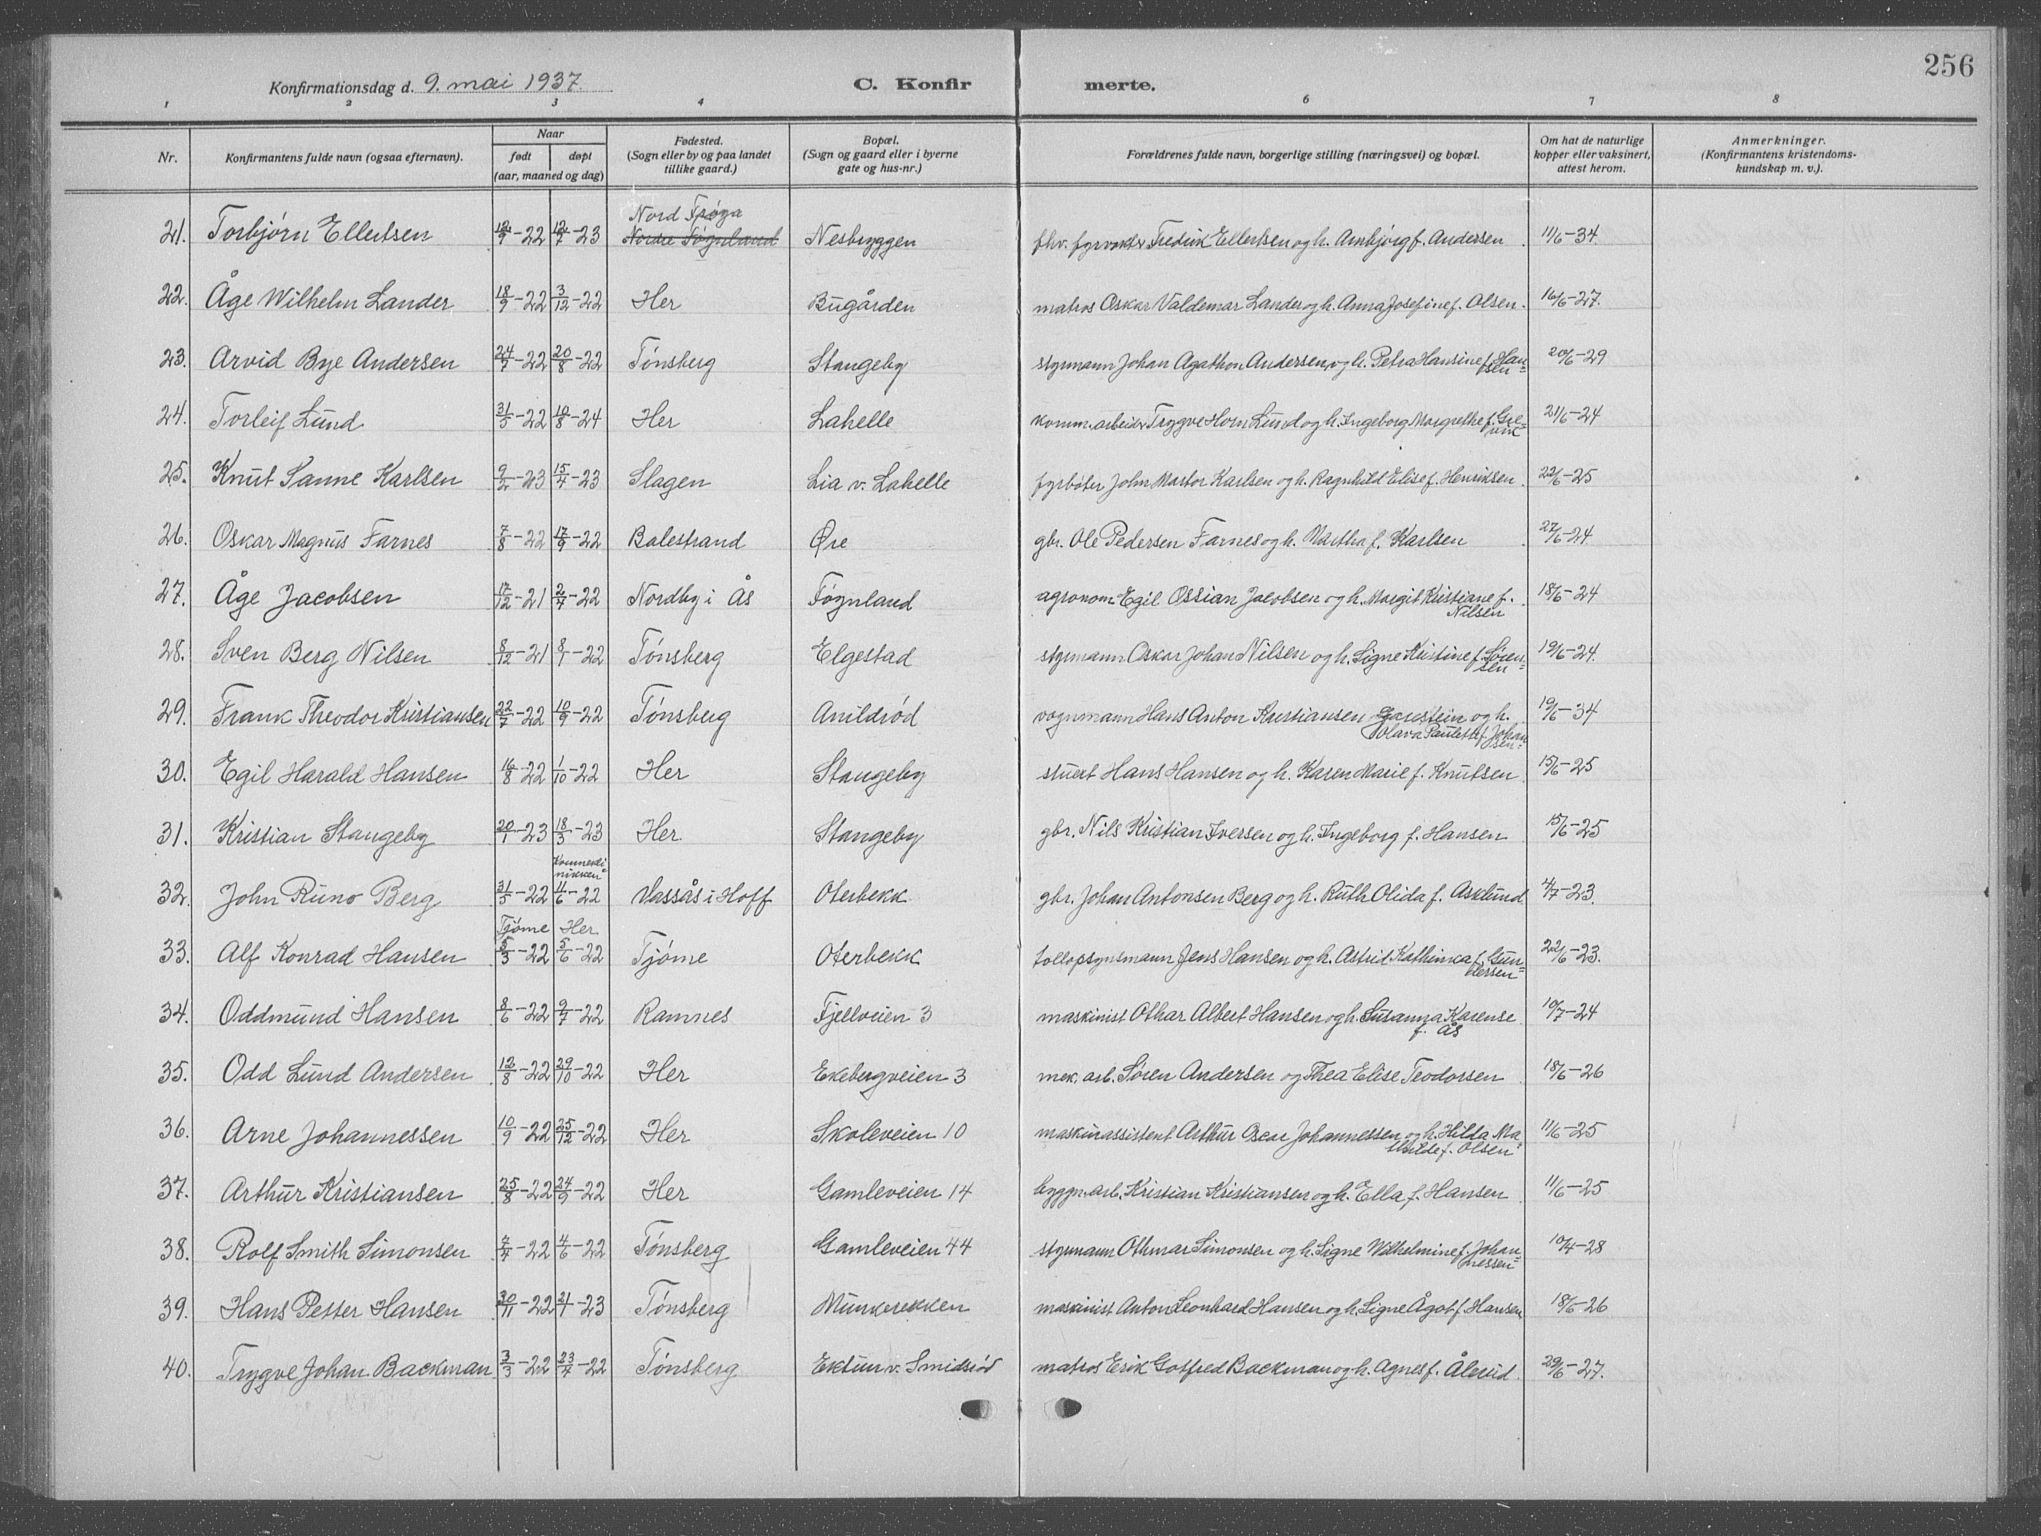 256
Konfirmationsdag d. 9. mai 1937.
C. Konfirmerte.
1 2 3 4 6 7 8
Nr.
Konfirmantens fulde navn (ogsaa efternavn).
Naar
født døpt
(aar, maaned og dag)
Fødested.
(Sogn eller by og paa landet
tillike gaard.)
Bopæl.
(Sogn og gaard eller i byerne
gate og hus-nr.)
Forældrenes fulde navn, borgerlige stilling (næringsvei) og bopæl.
Om hat de naturlige
kopper eller vaksinert,
attest herom.
Anmerkninger.
(Konfirmantens kristendoms-
kundskap m. v.).
Nord Frøya
21. Torbjørn Ellertsen 12/9-22 12/7-23 Nordre Føynland Nesbryggen fhv. fyrvokter Fredrik Ellertsen og h. Arnbjørg f. Andersen 11/6-34
22. Åge Wilhelm Lander 18/9-22 3/12-22 Her Bugården matros Oskar Valdemar Lander og h. Anna Josefine f. Olsen. 16/6-27.
23. Arvid Bye Andersen 24/7-22 20/8-22 Tønsberg Stangeby styrmann Johan Agathon Andersen og h. Petra Hansine f. Han=
sen 20/6-29
24. Torleif Lund 31/5-22 10/8-24 Her Lahelle komm.arbeider Trygve Horn Lund og h. Ingeborg Margrethe f. 21/6-24
25. Knut Sanne Karlsen 9/2-23 15/4-23 Slagen Lia v. Lahelle fyrbøter John Martor Karlsen og h. Ragnhild Elise f. Henriksen. 22/6-25
26. Oskar Magnus Farnes 7/8-22 17/9-22 Balestrand Øre gbr. Ole Pedersen Farnes og h. Martha f. Karlsen 27/6-24
27. Åge Jacobsen 17/12-21 2/4-22 Nordby i Ås Føynland agronom Egil Ossian Jacobsen og h. Margit Kristiane f.
Nilsen 18/6-24
28. Sven Berg Nilsen 8/12-21 8/1-22 Tønsberg Elgestad styrmann Oskar Johan Nilsen og h. Signe Kristine f. Søren=
sen 19/6-24.
29. Frank Theodor Kristiansen 22/7-22 10/9-22 Tønsberg Anildrød vognmann Hans Anton Kristiansen Gaustein og h.
Olava Paulette f. Johan
sen. 19/6-34
30. Egil Harald Hansen 16/8-22 1/10-22 Her Stangeby stuert Hans Hansen og h. Karen Marie f. Knutsen 15/6-25
31. Kristian Stangeby 20/1-23 18/3-23 Her Stangeby gbr. Nils Kristian Iversen og h. Ingeborg f. Hansen 15/6-25
32. John Runo Berg 31/5-22 4/6-22 Vassås i Hoff Oterbekk gbr. Johan Antonsen Berg og h. Ruth Olida f. Asklund 4/7-23.
Tjøme Her
33. Alf Konrad Hansen 5/3-22 5/6-22 Tjøme Oterbekk tollopsynsmann Jens Hansen og h. Astrid Kathinca f. Gun=
dersen 22/6-23.
34. Oddmund Hansen 8/6-22 9/7-22 Ramnes Fjellveien 3 maskinist Othar Albert Hansen og h. Susanna Karense
f. Ås 10/7-24
35. Odd Lund Andersen 13/8-22 29/10-22 Her Ekebergveien 3 mek. arb. Søren Andersen og Thea Elise Teodorsen 18/6-26
36. Arne Johannessen 10/9-22 25/12-22 Her Skoleveien 10 maskinassistent Arthur Oscar Johannessen og h. Hilda Ma=
thilde f. Olsen 11/6-25
37. Arthur Kristiansen 25/8-22 24/9-22 Her Gamleveien 14 byggn.arb. Kristian Kristiansen og h. Ella f. Hansen 11/6-25
38. Rolf Smith Simonsen 7/4-22 4/6-22 Tønsberg Gamleveien 44 styrmann Othmar Simonsen og h. Signe Wilhelmine f. Johan=
nessen 10/4-28
39. Hans Petter Hansen 30/11-22 21/1-23 Tønsberg Munkerekken maskinist Anton Leonhard Hansen og h. Signe Ågot f. Hansen 18/6-26
40. Trygve Johan Backman 3/3-22 23/4-22 Tønsberg Ektun v. Smidsrød matros Erik Gotfred Backman og h. Agnes f. Ålerud. 29/6-27.